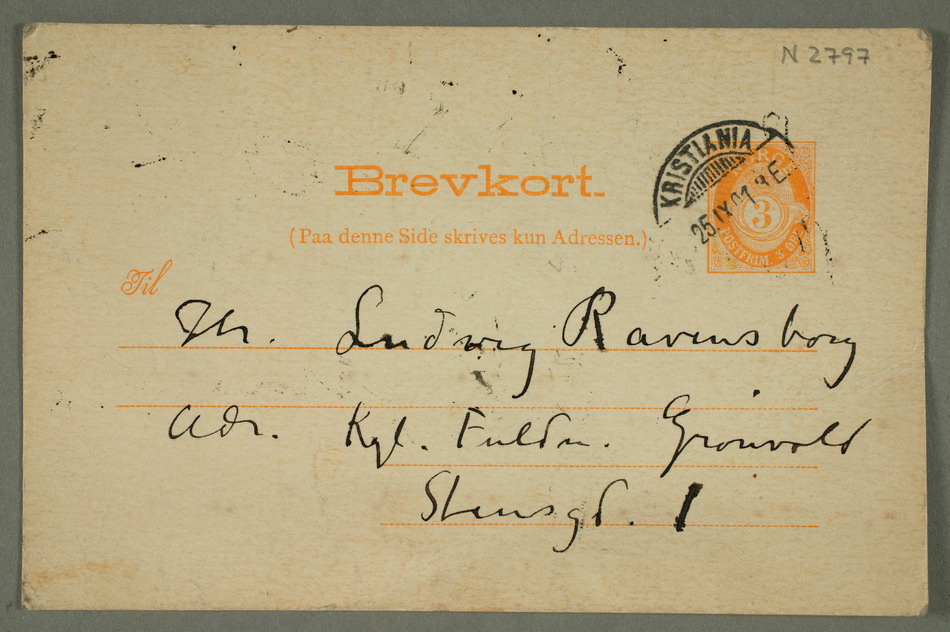 N 2797
KRISTIANIA
25 IX 01 3 E
NORGE
3
POSTFRIM. 3 ØRE
Brevkort.
(Paa denne Side skrives kun Adressen.)
Til
Hr. Ludwig Ravensborg
Adr. Kgl. Fuldm. Grönvold
Stensgd. 1